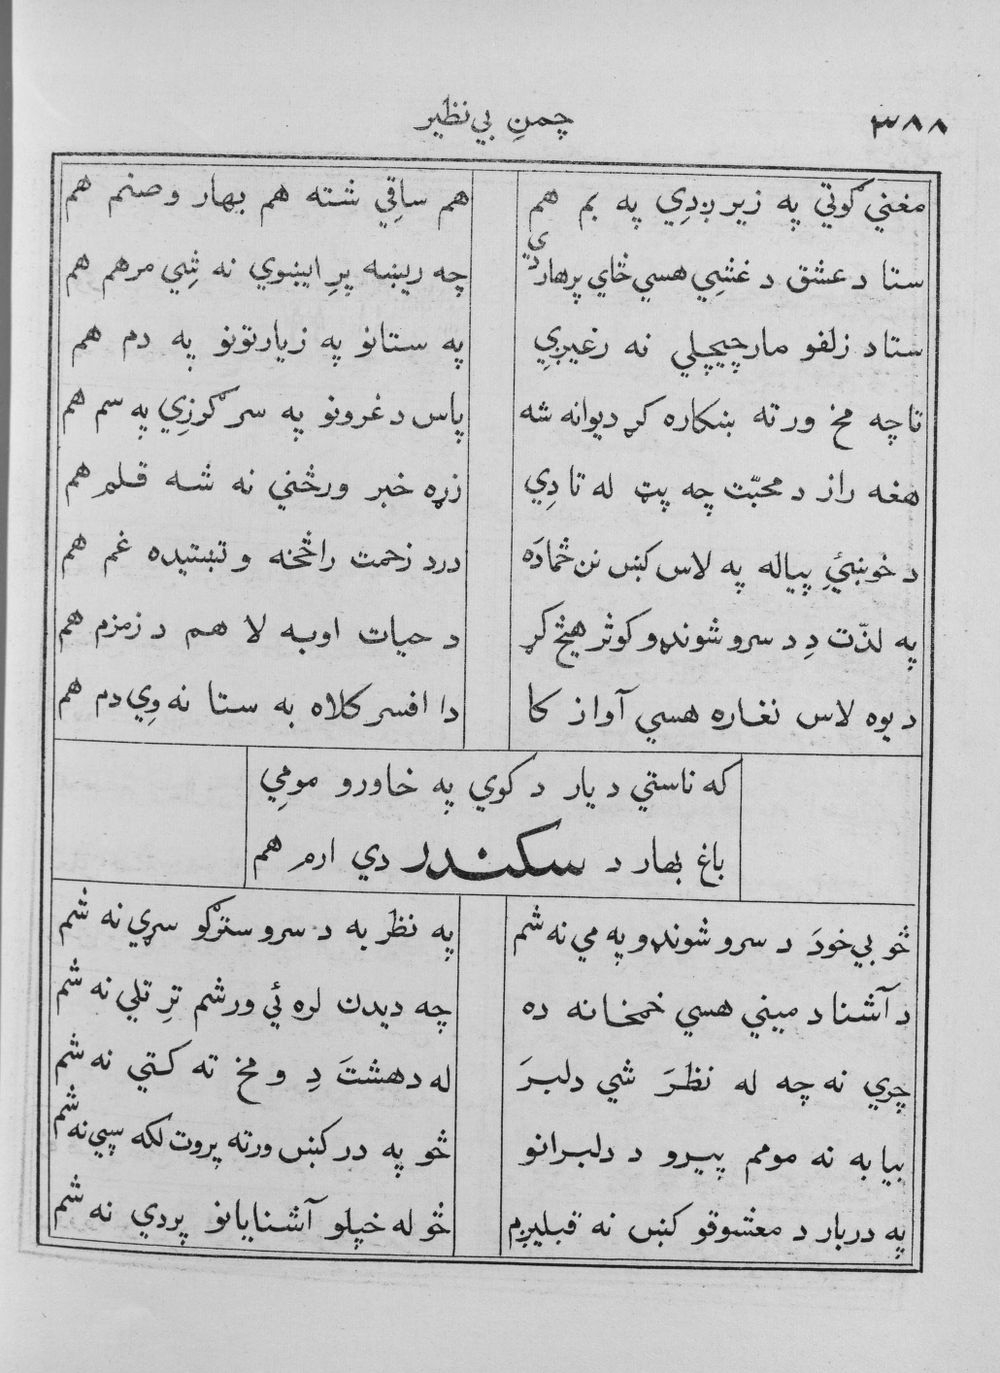 ٣٨٨
چمنِ بي نظير
مغني ګوتي په زير ږدِي په بم هم
هم ساقِي شته هم بهار و صنم هم
ستا د عشق د غشِي هسي ځاي پرهار دي
چه ريښه پرِ ايښوي نه شِي مرهم هم
ستا د زلفو مار چيچلي نه رغيږِي
په ستانو په زيارتونو په دم هم
تا چه مخ ورته ښکاره کړ ديوانه شه
پاس د غرونو په سر ګرزِي په سم هم
هغه راز د محبّت چه پټ له تا دِي
زړه خبر ورڅني نه شه قلم هم
د خوښئِ پياله په لاس کښ نن ځما دَه
درد زحمت راڅخه و تښتيده غم هم
په لذّت دِ د سرو شونډو کوثر هيڅ کړ
د حيات اوبه لا هم د زمزم هم
د يوه لاس نغاره هسي آواز کا
دا افسر کلاه به ستا نه وِي دم هم
که ناستي د يار د کوي په خاورو مومِي
باغ بهار د سکندر دي ارم هم
څو بي خودَ د سرو شونډو په مي نه شم
په نظر به د سرو سترګو سړي نه شم
د آشنا د ميني هسي خمخانه ده
چه ديدن لره ئي ورشم ترِ تلي نه شم
چري نه چه له نظرَ شي دلبرَ
له دهشتَ دِ و مخ ته کتي نه شم
بيا به نه مومم پيرو د دلبرانو
څو په در کښ ورته پروت لکه سپي نه شم
په دربار د معشوقو کښ نه قبليږم
څو له خپلو آشنايانو پردي نه شم